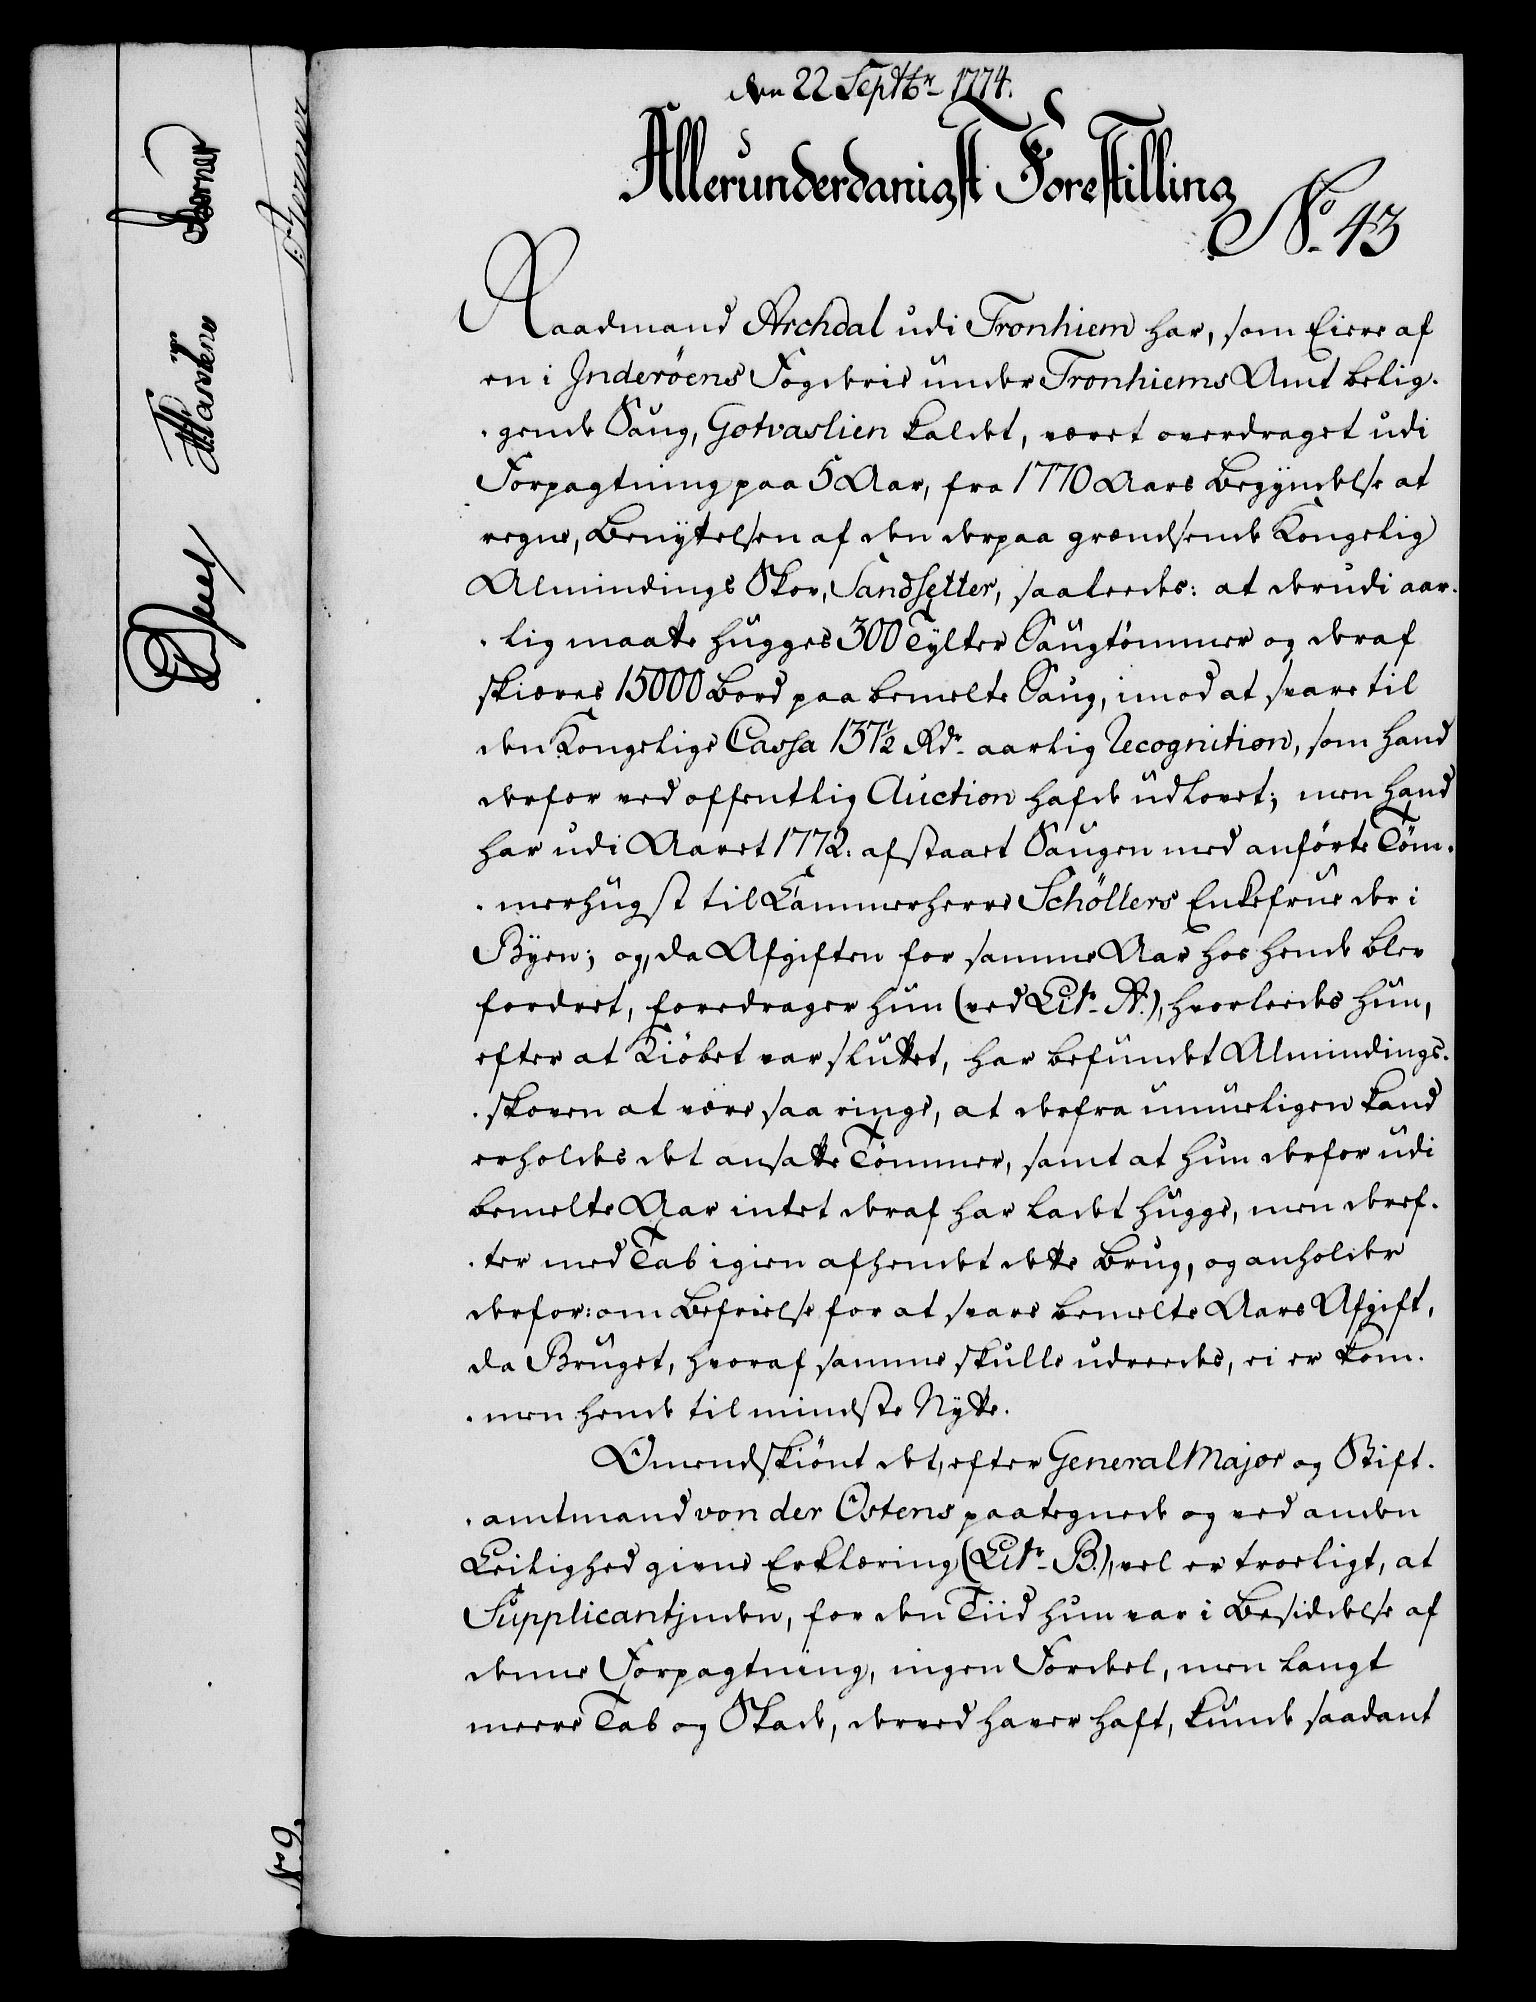 den 22 Septbr 1774.
Allerunderdanigst Forestilling
No. 43
Raadmand Archdal udi Tronhiem har, som Eiere af
en i Inderöens Fogderie under Tronhiems Amt belig-
-gende Saug, Gotvaslien kaldet, været overdraget udi
Forpagtning paa 5 Aar, fra 1770 Aars Begyndelse at
regne, Benytelsen af den derpaa grændsende Kongelig
Almindings Skov, Sandsetter, saaleedes: at derudi aar-
-lig maatte hugges 300 Tylter Saugtømmer og deraf
skiæres 15000 Bord paa bemelte Saug, imod at svare til
den Kongelige Cassa 137½ Rdr. aarlig Recognition, som hand
derfor ved offentlig Auction hafde udlovet; men hand
har udi Aaret 1772. afstaaet Saugen med anførte Tøm-
-merhugst til Cammerherre Schöllers Enkefrue der i
Byen; og, da Afgiften for samme Aar hos hende blev
fordret, foredrager hun (ved Litr. A.), hvorleedes hun,
efter at Kiöbet var sluttet, har befundet Almindings-
-skoven at være saa ringe, at derfra umueligen kand
erholdes det ansatte Tømmer, samt at hun derfor udi
bemelte Aar intet deraf har ladet hugge, men deref-
-ter med Tab igien afhendet dette Brug, og anholder
derfor: om Befrielse for at svare bemelte Aars Afgift,
da Bruget, hvoraf samme skulle udreedes, ei er kom-
-men hende til mindste Nytte.
Omendskiönt det, efter General Major og Stift-
-amtmand von der Ostens paategnede og ved anden
Leilighed givne Erklæring (Litr. B.), vel er troeligt, at
Supplicantinden, for den Tiid hun var i Besiddelse af
denne Forpagtning, ingen Fordeel, men langt
meere Tab og Skade, derved haver haft, kunde saadant
No 9.